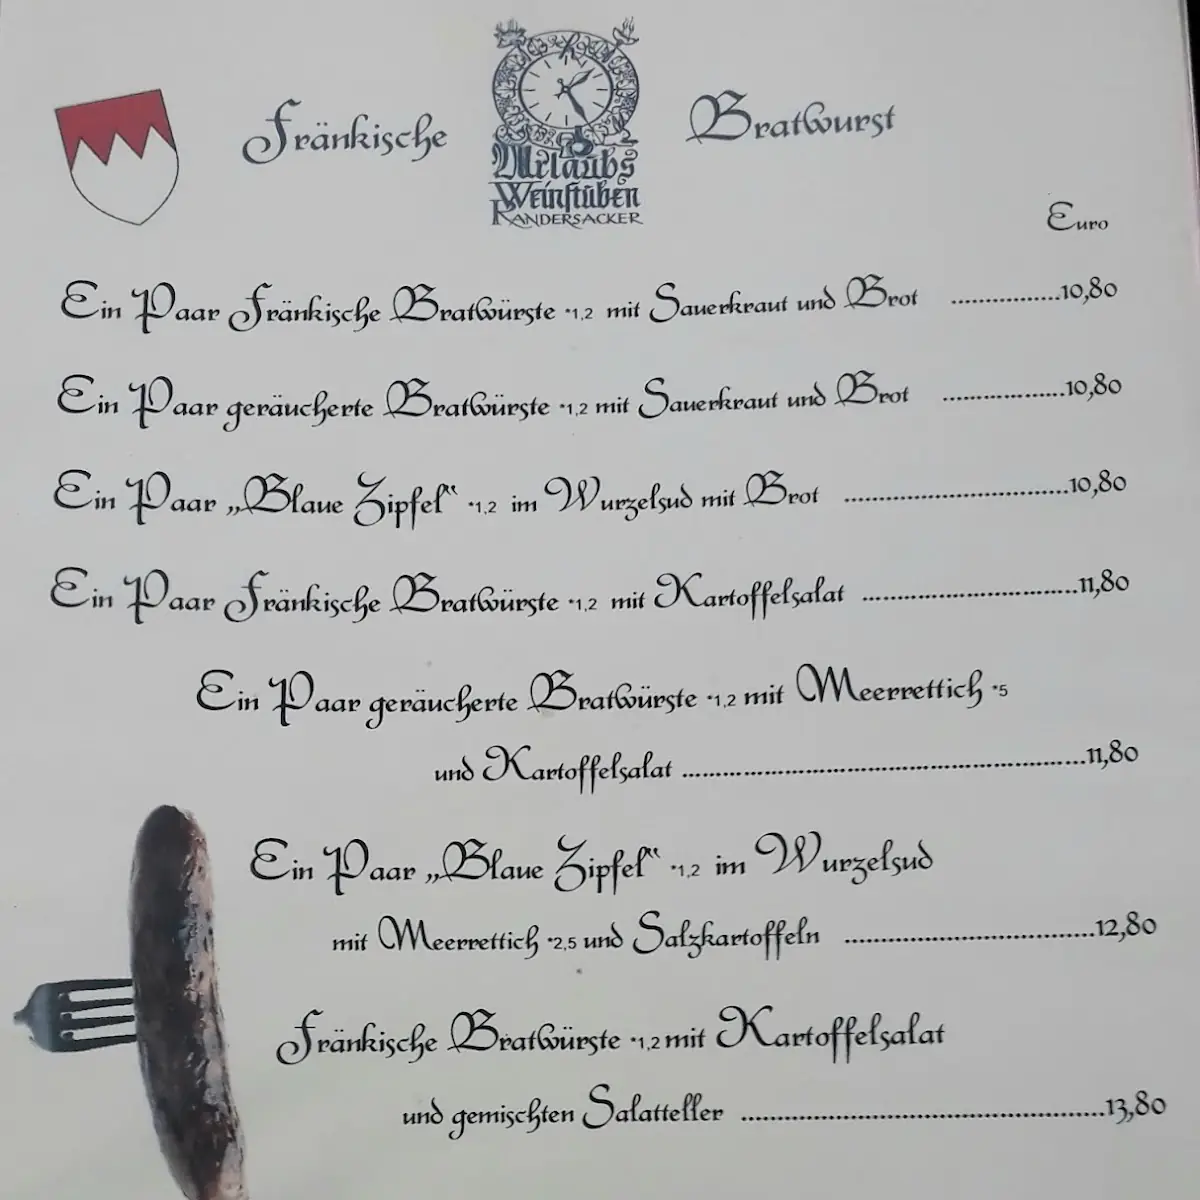 Fränkische Bratwurst
Urlaubs
Weinstüben
RANDERSACKER
Euro
Ein Paar Fränkische Bratwürste *1,2 mit Sauerkraut und Brot ................10,80
Ein Paar geräucherte Bratwürste *1,2 mit Sauerkraut und Brot ..................10,80
Ein Paar „Blaue Zipfel“ *1,2 im Wurzelsud mit Brot .................................10,80
Ein Paar Fränkische Bratwürste *1,2 mit Kartoffelsalat ................................11,80
Ein Paar geräucherte Bratwürste *1,2 mit Meerrettich *5
und Kartoffelsalat ............................................................11,80
Ein Paar „Blaue Zipfel“ *1,2 im Wurzelsud
mit Meerrettich *2,5 und Salzkartoffeln .....................................12,80
Fränkische Bratwürste *1,2 mit Kartoffelsalat
und gemischten Salatteller ......................................................13,80